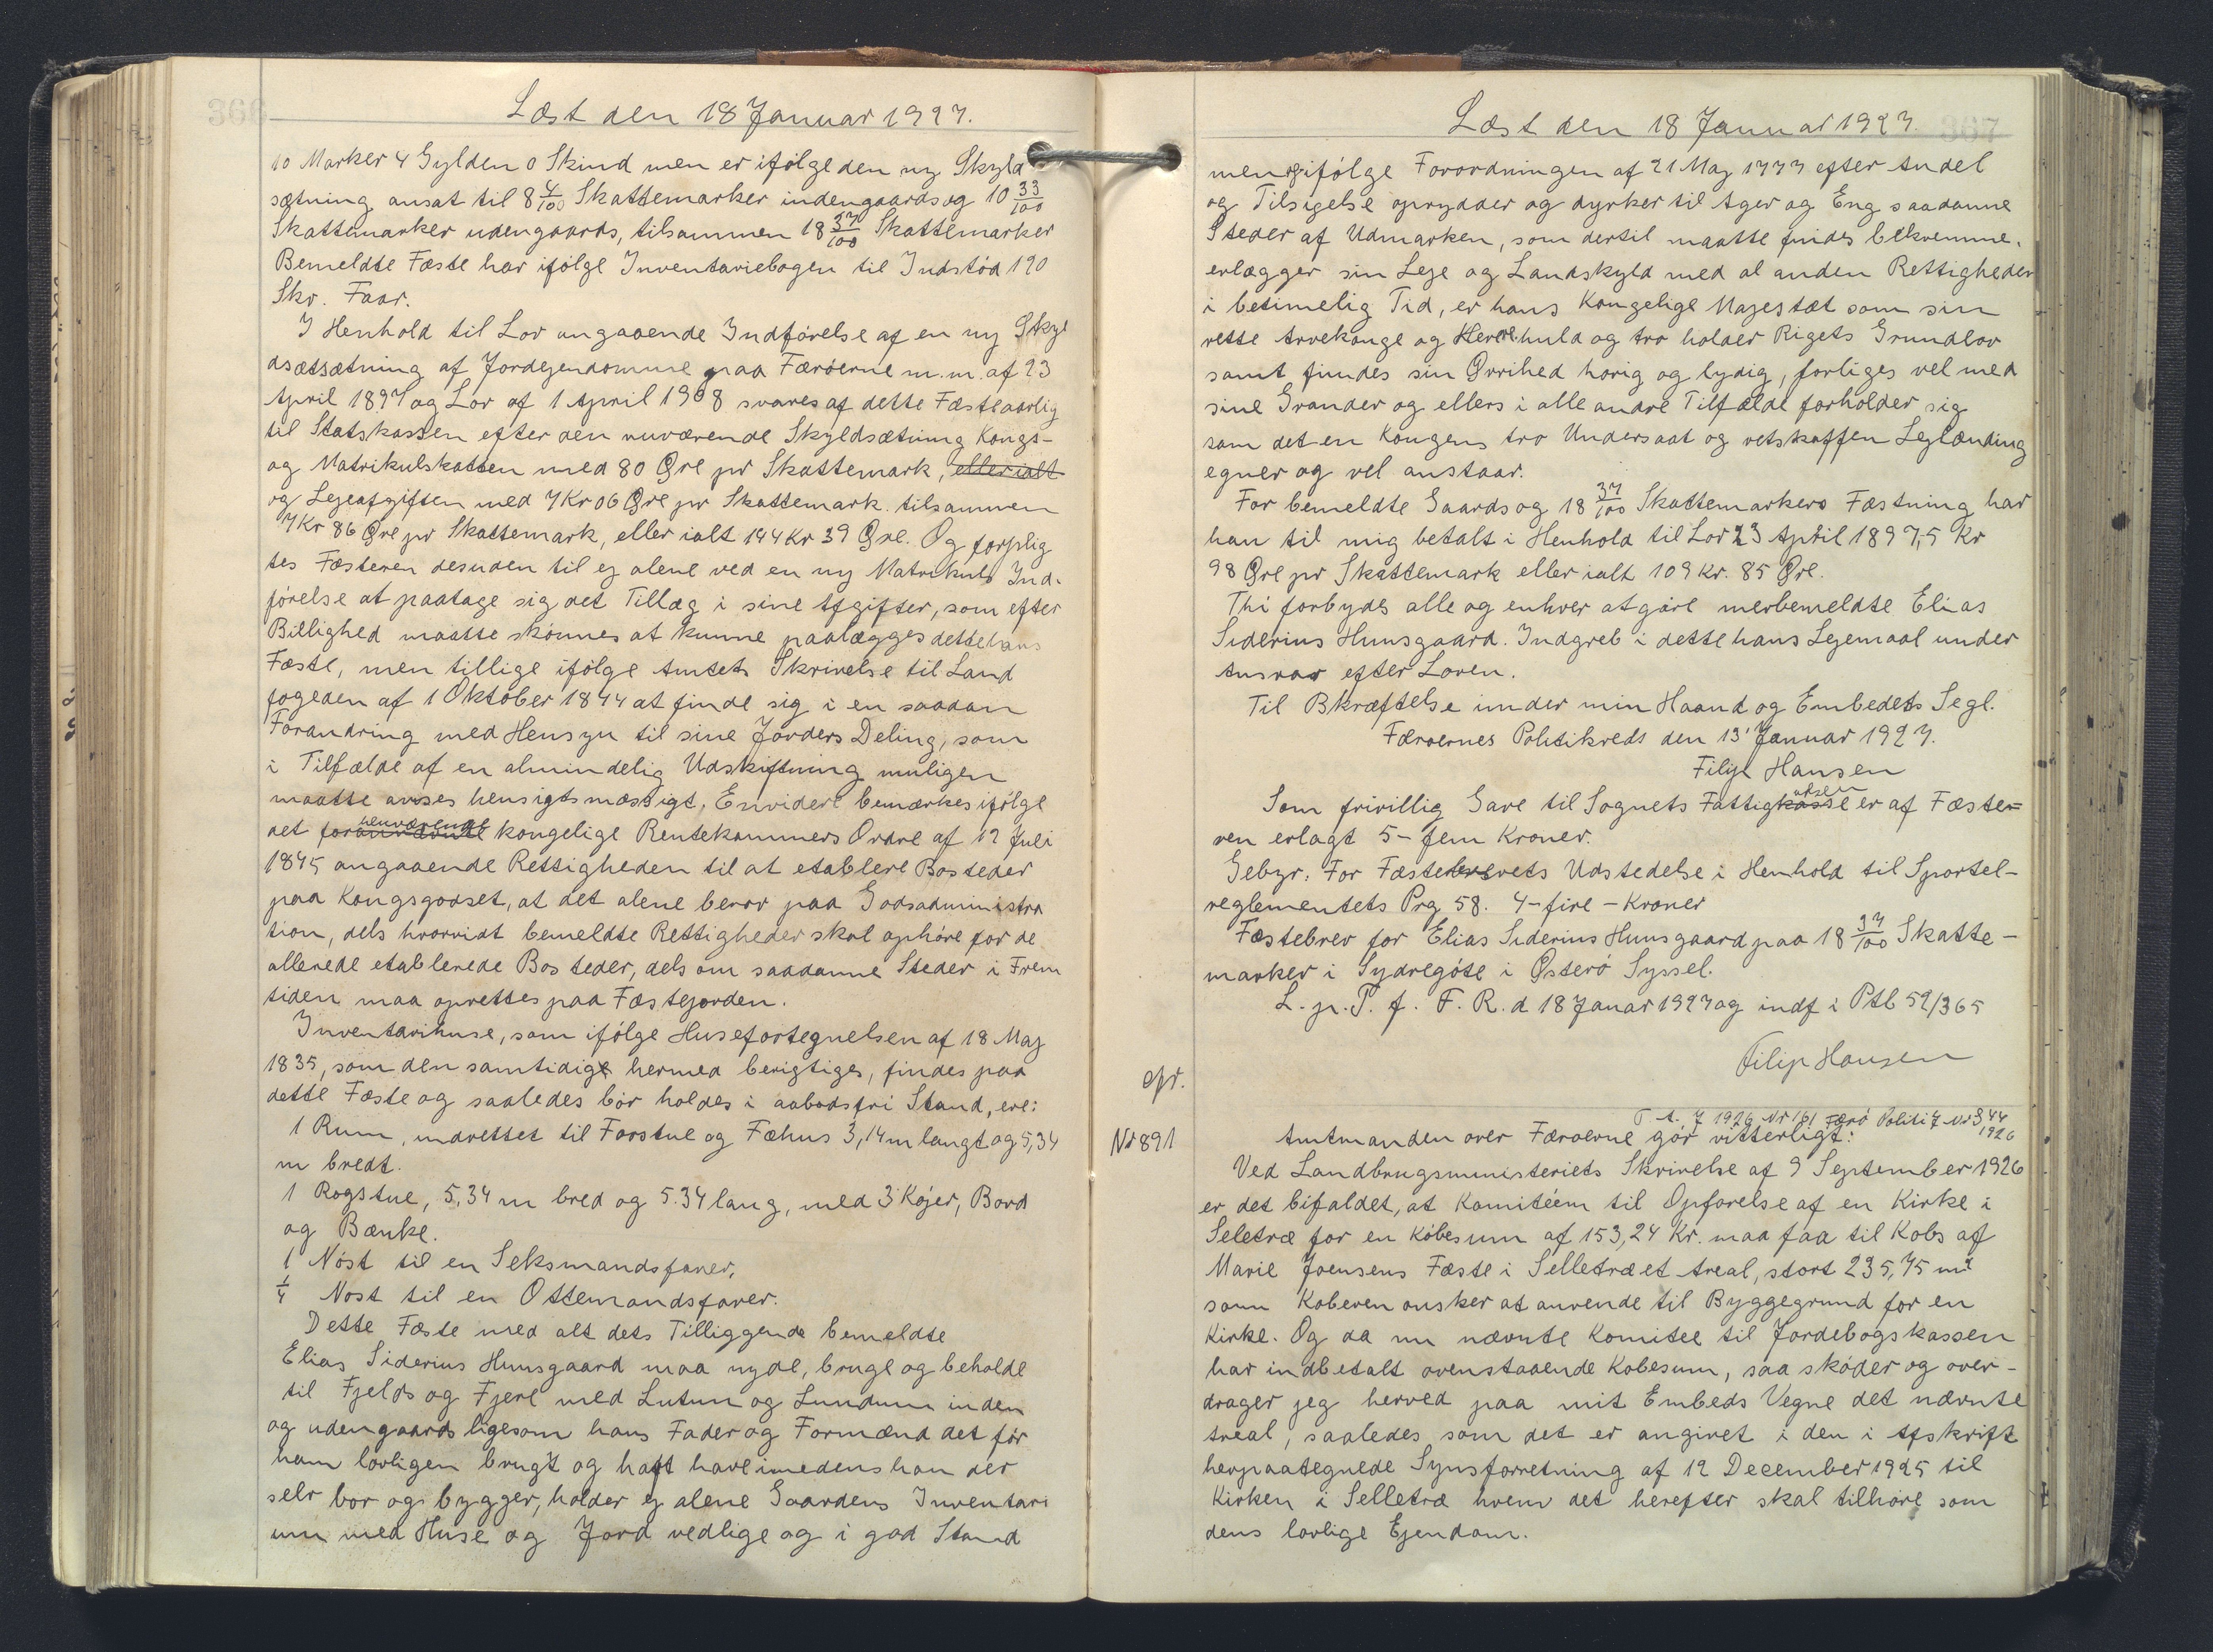 366
Læst den 18 Januar 1927.
10 Marker 4 Gylden 0 Skind men er ifölge den ny Skyld
sætning ansat til 8 4/100 Skattemarker indengaards og 10 33/100
Skattemarker udengaards, tilsammen 18 37/100 Skattemarker
Bemeldte Fæste har ifölge Inventariebogen til Indstöd 120
Skr. Faar.
I Henhold til Lov angaaende Indförelse af en ny Skyl
dsætsætning af Jordejendomme paa Færöerne m.m. af 23
April 1897 og Lov af 1 April 1908 svares af dette Fæste aarlig
til Statskassen efter den nuværende Skyldsætning Kongs-
og Matrikulskatten med 80 Øre pr Skattemark, eller ialt
og Lejeafgiften med 7 Kr 06 Øre pr Skattemark. tilsammen
7 Kr 86 Øre pr Skattemark, eller ialt 144 Kr 39 Øre. Og forplig
tes Fæsteren desuden til ej alene ved en ny Matrikuls Ind-
förelse at paatage sig det Tillæg i sine Afgifter, som efter
Billighed maatte skönnes at kunne paalægges dette hans
Fæste, men tillige ifölge Amtets Skrivelse til Land
fogeden af 1 Oktober 1844 at finde sig i en saadan
Forandring med Hensyn til sine Jorders Deling, som
i Tilfælde af en almindelig Udskiftning muligen
maatte avses hensigtsmæssigt. Envidere bemærkes ifölge
det forhenværende kongelige Rentekammers Ordre af 12 Juli
1845 angaaende Rettigheden til at etablere Bosteder
paa Kongsgodset, at det alene beror paa Godsadministra
tion, dels hvorvidt bemeldte Rettigheder skal ophöre for de
allerede etablerede Bosteder, dels om saadanne Steder i Frem
tiden maa oprettes paa Fæstejorden.
Inventarihuse, som ifölge Husefortegnelsen af 18 Maj
1835, som den samtidigt hermed berigtiges, findes paa
dette Fæste og saaledes bör holdes i aabodsfri Stand, ere:
1 Rum, indrettet til Forstue og Fæhus 3,14 m langt og 5,34
m bredt.
1 Rogstue, 5,34 m bred og 5.34 lang, med 3 Köjer, Bord
og Bænke.
1 Nöst til en Seksmandsfarer,
1/4 Nost til en Ottemandsfarer.
Dette Fæste med alt dets Tilliggende bemeldte
Elias Siderius Hunsgaard maa nyde, bruge og beholde
til Fjelds og Fjere med Lutum og Lundum inden
og udengaards ligesom hans Fader og Formænd det för
ham lovligen brugt og haft have imedens han der
selv bor og bygger, holder ej alene Gaardens Inventari
um med Huse og Jord vedlige og i god Stand
367
Læst den 18 Januar 1927.
men ifölge Forordningen af 21 Maj 1777 efter Andel
og Tilsigelse oprydder og dyrker til Ager og Eng saadanne
Steder af Udmarken, som dertil maatte findes bekvemme.
erlægger sin Leje og Landskyld med al anden Rettigheder
i betimelig Tid, er hans Kongelige Majestæt som sin
rette Arvekonge og Herre huld og tro holder Rigets Grundlov
samt findes sin Øvrihed hörig og lydig, forliges vel med
sine Grander og ellers i alle andre Tilfælde forholder sig
som det en Kongens tro Undersaat og retskaffen Lejlænding
egner og vel anstaar.
For bemeldte Gaards og 18 37/100 Skattemarkers Fæstning har
han til mig betalt i Henhold til Lov 23 April 1897, 5 Kr
98 Øre pr Skattemark eller ialt 109 Kr. 85 Øre.
Thi forbydes alle og enhver at göre merbemeldte Elias
Siderius Hunsgaard. Indgreb i dette hans Lejemaal under
Ansvar efter Loven.
Til Bkræftelse under min Haand og Embedets Segl.
Færoernes Politikreds den 13 Januar 1927.
Filip Hansen
Som frivillig Gave til Sognets Fattigkasse er af Fæster-
ren erlagt 5- fem Kroner.
Gebyr: For Fæstebrevets Udstedelse i Henhold til Sportel-
reglementets Prg 58. 4- fire - Kroner
Fæstebrev for Elias Siderius Hunsgaard paa 18 37/100 Skatte-
marker i Sydregöte i Österö Syssel.
L. p. T. f. F. R. d 18 Januar 1927 og indf i Ptb 52/365
Filip Hansen
Nr 891
T A. J 1926 Nr 161 Færö Politi J Nr 344
1926
Amtmanden over Færoerne gör vitterligt:
Ved Landbrugsministeriets Skrivelse af 9 September 1926
er det bifaldet, at Komitéen til Opförelse af en Kirke i
Seletræ for en Köbesum af 153,24 Kr. maa faa til Kobs af
Marie Joensens Fæste i Selletræ et Areal, stort 235,75 m²
som Koberen onsker at anvende til Byggegrund for en
Kirke. Og da nu nævnte Komitee til Jordebogskassen
har indbetalt ovenstaaende Kobesum, saa sköder og over-
drager jeg herved paa mit Embeds Vegne det nævnte
Areal, saaledes som det er angivet i den i Afskrift
herpaategnede Synsforretning af 12 December 1925 til
Kirken i Selletræ hvem det herefter skal tilhöre som
dens lovlige Ejendom.